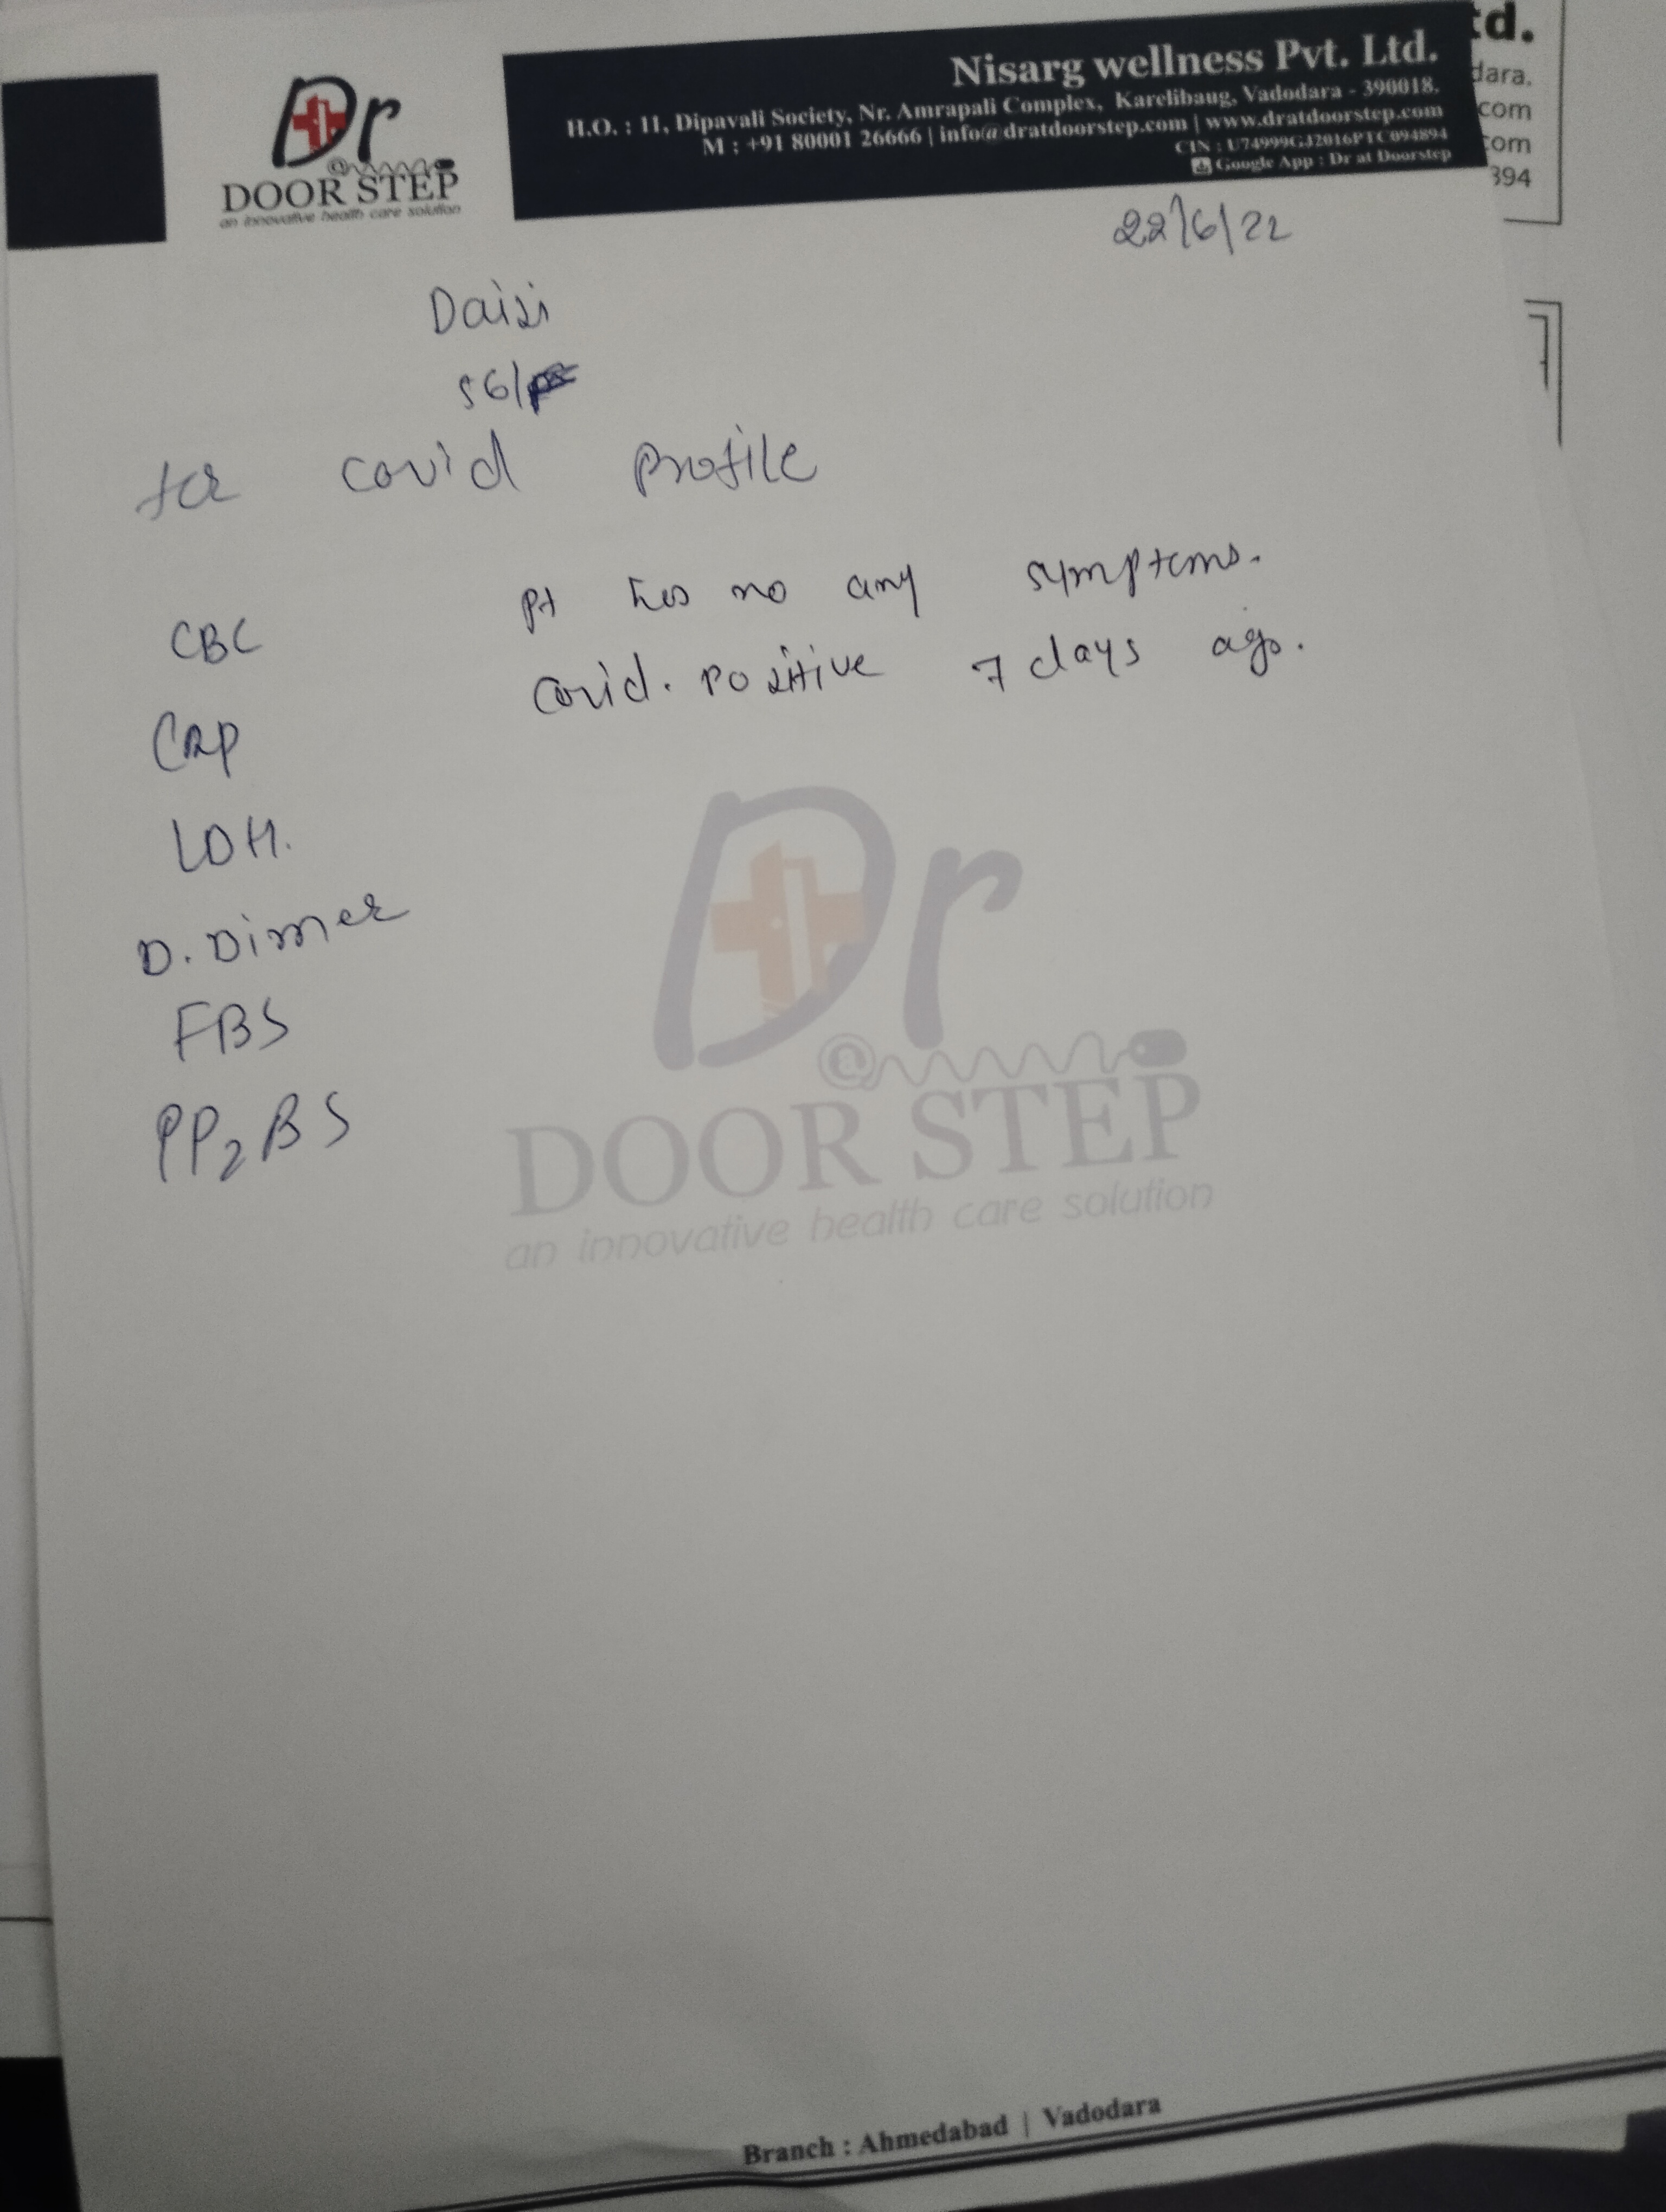 Dr
@
DOOR STEP
an innovative health care solution
Nisarg wellness Pvt. Ltd.
H.O. : 11, Dipavali Society, Nr. Amrapali Complex, Karelibaug, Vadodara - 390018.
M : +91 80001 26666 | info@dratdoorstep.com | www.dratdoorstep.com
CIN : U74999GJ2016PTC094894
Google App : Dr at Doorstep
td.
dara.
com
com
394
22/6/22
Daisi
56/
for covid profile
CBC
pt has no any symptoms.
Covid. positive 7 days ago.
CRP
LDH.
D. Dimer
FBS
PP2BS
Dr
@
DOOR STEP
an innovative health care solution
Branch : Ahmedabad | Vadodara